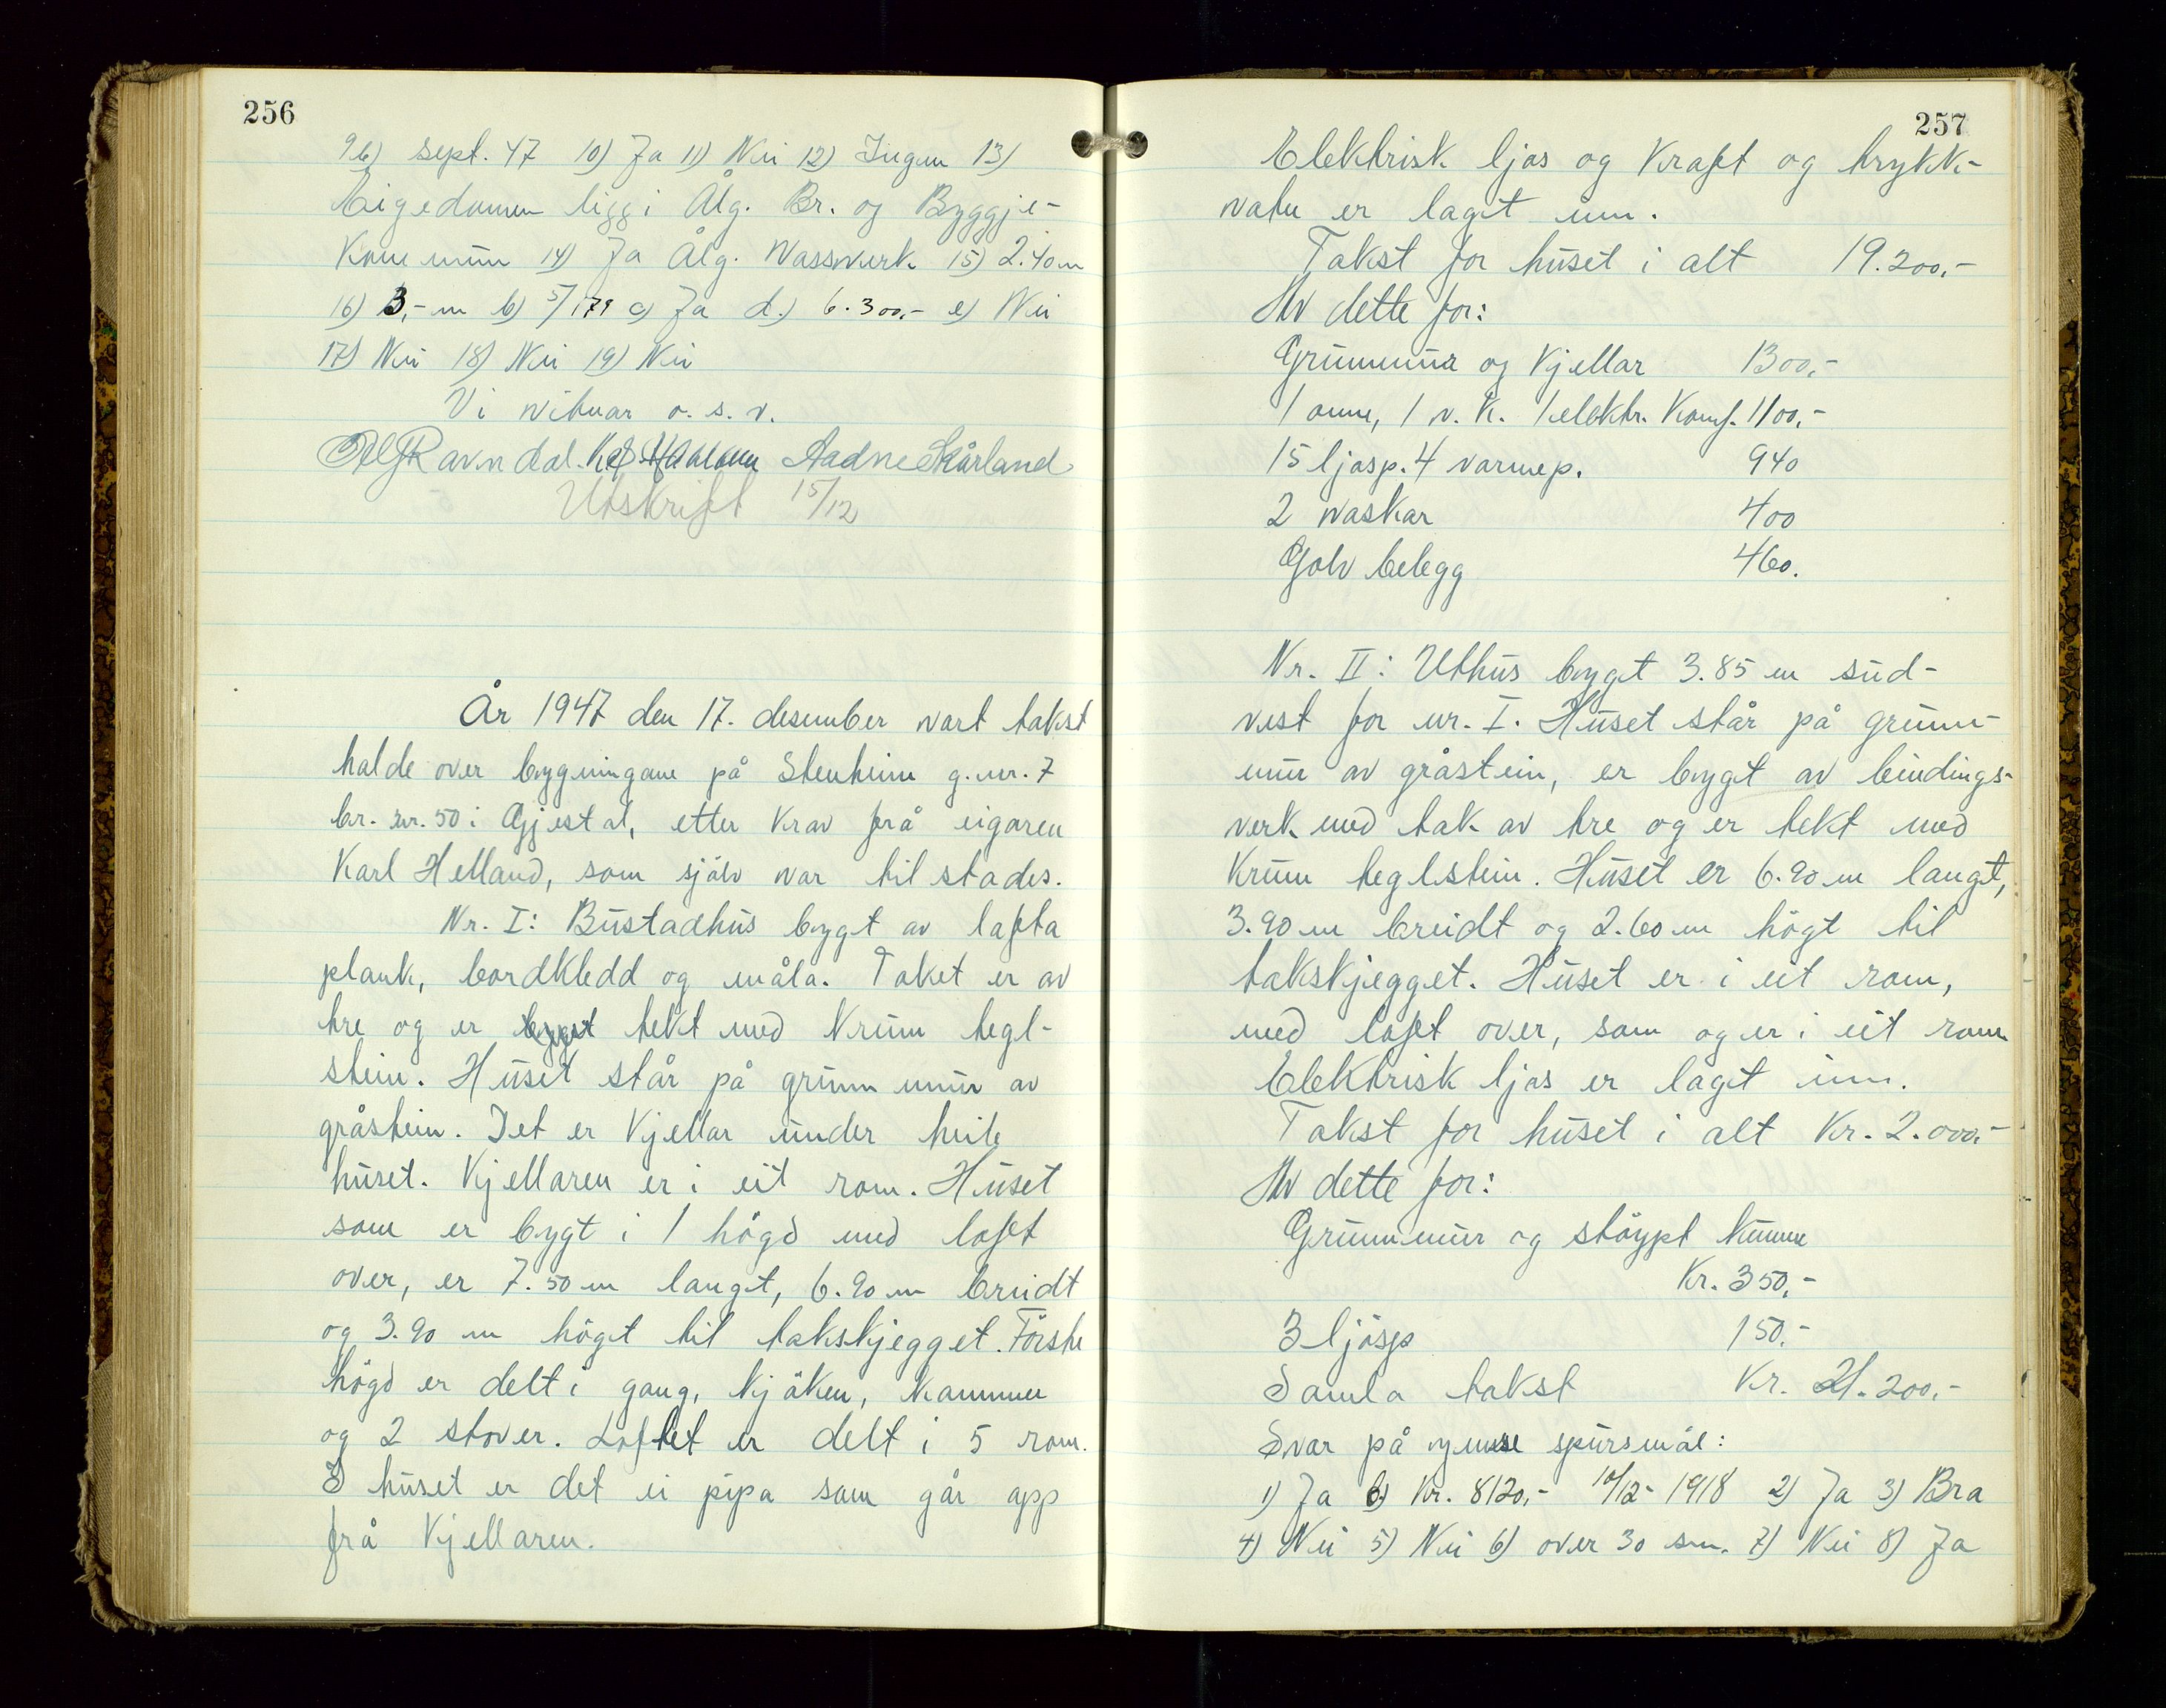 256
9b) sept. 47 10) Ja 11) Nei 12) Ingen 13)
Eigedomen ligg i Ålg. Br. og Byggje-
kommun 14) Ja Ålg. Vassverk 15) 2.40 m
16) 3,- m b) 5/179 c) Ja d.) 6.300.- e) Nei
17) Nei 18) Nei 19) Nei
Vi vitnar o. s. v.
Ravndal. Aadne Skårland
Utskrift 15/12
År 1947 den 17. desember vart takst
halde over bygningane på Steinheim g.nr. 7
br. nr. 50 i Gjestal, etter krav frå eigaren
Karl Helland, som sjølv var til stades.
Nr. I: Bustadhus bygt av lafta
plank, bordkledd og måla. Taket er av
tre og er tekt med krum tegl-
stein. Huset står på grunn mur av
gråstein. Det er kjellar under heile
huset. Kjellaren er i eit rom. Huset
som er bygt i 1 högd med loft
over, er 7.50 m langt, 6.90 m breidt
og 3.90 m högt til takskjegget. Förste
högd er delt i gang, kjöken, kammer
og 2 stover. Loftet er delt i 5 rom.
I huset er det ei pipa som går opp
frå kjellaren.
257
Elektrisk ljos og kraft og trykk-
vatn er lagt inn.
Takst for huset i alt 19.200,-
Av dette for:
Grunnmur og kjellar 1300,-
1 omn, 1 v. k. 1 elektr. komf. 1100,-
15 ljosp. 4 varmep. 940
2 vaskar 400
Golv belegg 460.
Nr. II: Uthus bygt 3.85 m sud-
vest for nr. I. Huset står på grunn-
mur av gråstein, er bygt av bindings-
verk med tak av tre og er tekt med
krum teglstein. Huset er 6.90 m langt,
3.90 m breidt og 2.60 m högt til
takskjegget. Huset er i eit rom,
med loft over, som og er i eit rom
Elektrisk ljos er lagt inn.
Takst for huset i alt Kr. 2.000,-
Av dette for:
Grunnmur og stöypt kumme
Kr. 350,-
3 ljosp 150.-
Samla takst Kr. 21.200,-
Svar på ymse spursmål:
1) Ja b) Kr. 8120,- 10/12- 1918 2) Ja 3) Bra
4) Nei 5) Nei 6) over 30 sm. 7) Nei 8) Ja